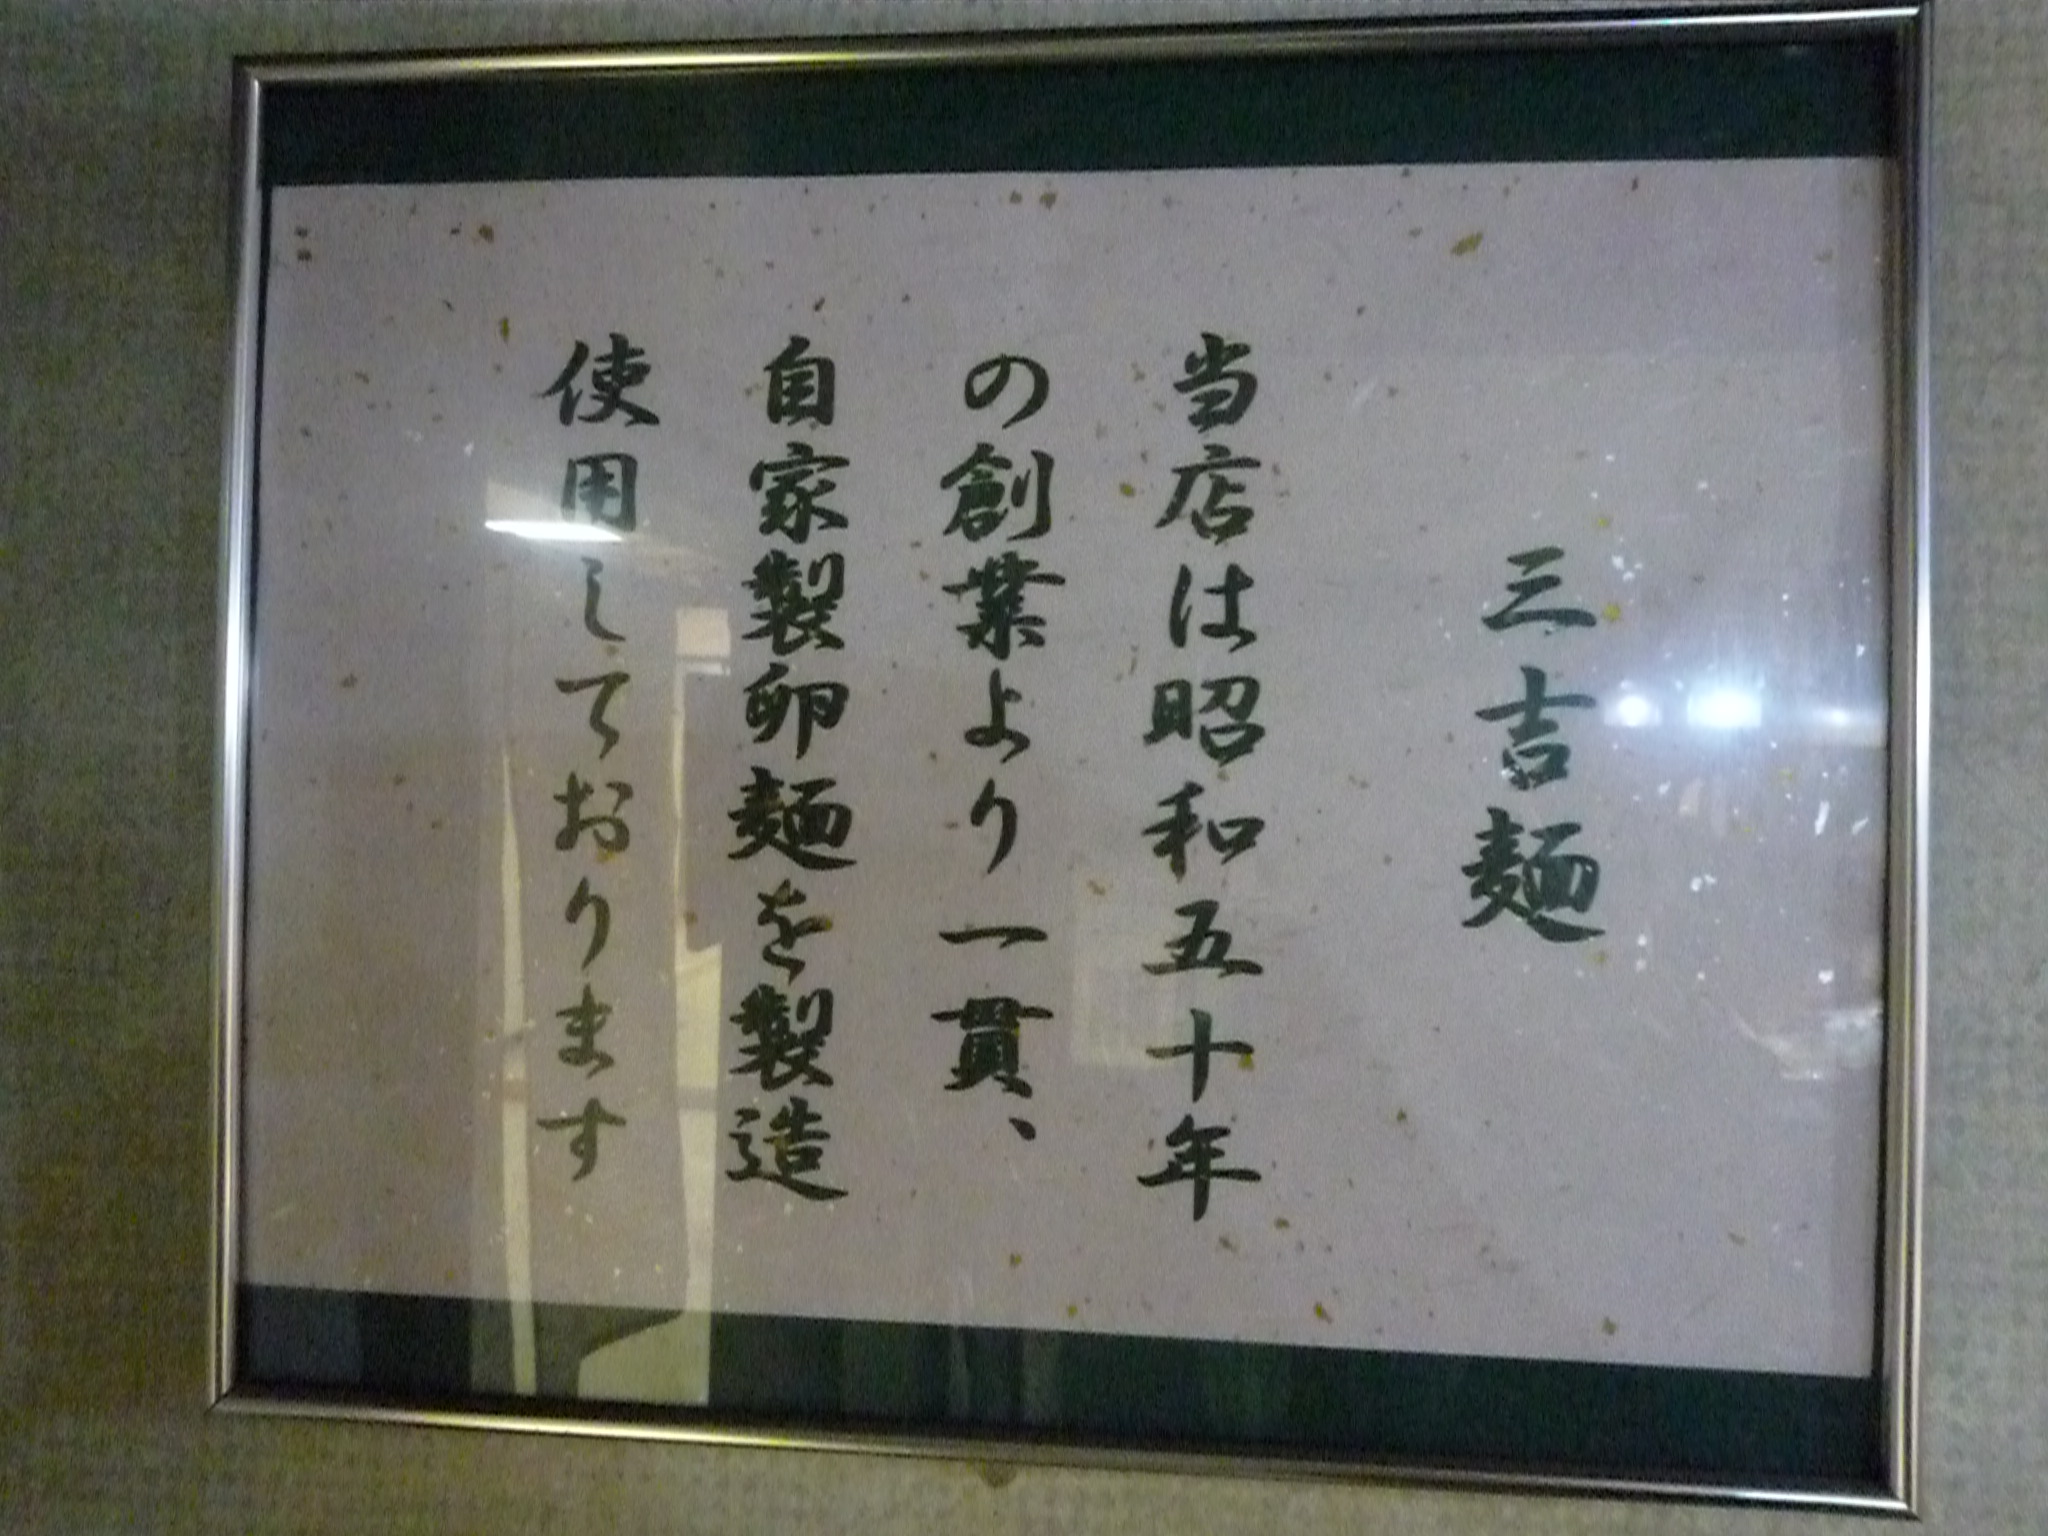 三吉麺
当店は昭和五十年
の創業より一貫、
自家製卵麺を製造
使用しております